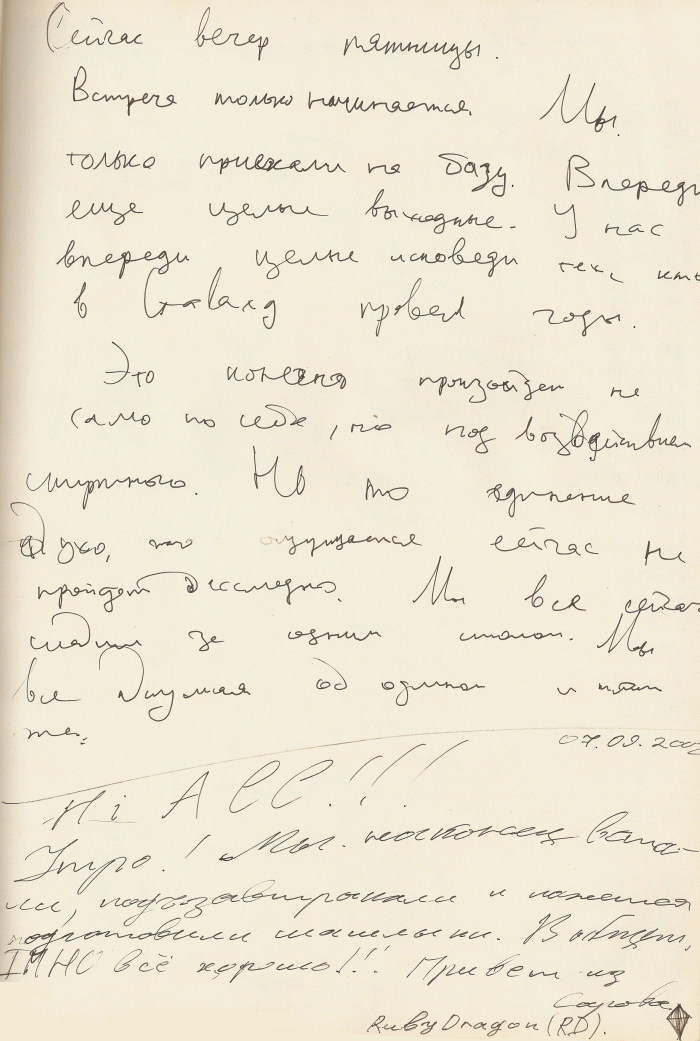 Сейчас вечер пятницы.
Встреча только начинается. Мы
только приехали на базу. Впереди
еще целые выходные. У нас
впереди целые исповеди тех, кто
в Galaxy провел годы.
Это конечно произойдет не
само по себе, но под воздействием
спиртного. Но то единение
Духа, что ощущается сейчас не
пройдет бесследно. Мы все сейчас
сидим за одним столом. Мы
все думаем об одном и том
же.
07.09.2002
Hi All!!!
Утро! Мы наконец
и кажется
подготовили шашлыки. В общем,
IMHO всё хорошо!!! Привет из
RubyDragon (RD).